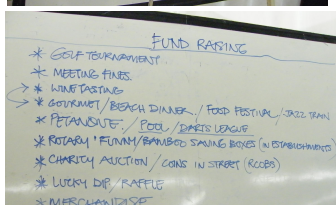 FUND RAISING
* GOLF TOURNAMENT
* MEETING FINES.
* WINE TASTING
* GOURMET / BEACH DINNER / FOOD FESTIVAL / JAZZ TRAIN
* PETANQUE. / POOL / DARTS LEAGUE
* ROTARY "FUNNY/BAMBOO SAVING BOXES (IN ESTABLISHMENTS)
* CHARITY AUCTION / COINS IN STREET (RCOBS)
* LUCKY DIP / RAFFLE
* MERCHANDISE